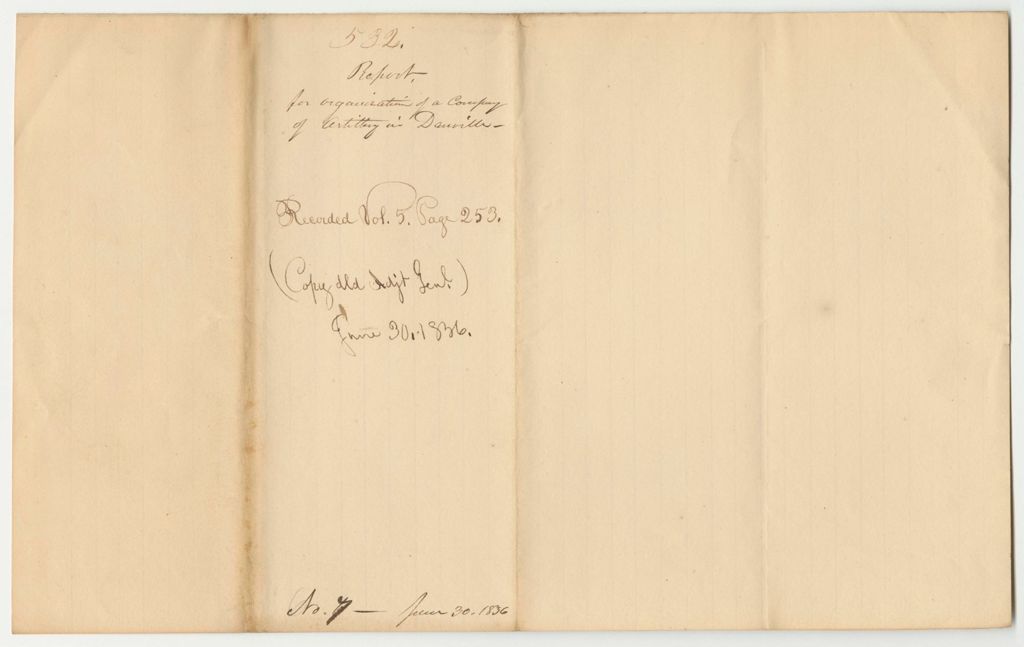 532.
Report,
for organization of a Company
of Artillery in Danville—
Recorded Vol. 5. Page 253.
(Copy dld Adjt Genl.)
June 30, 1836.
No. 7 — June 30. 1836